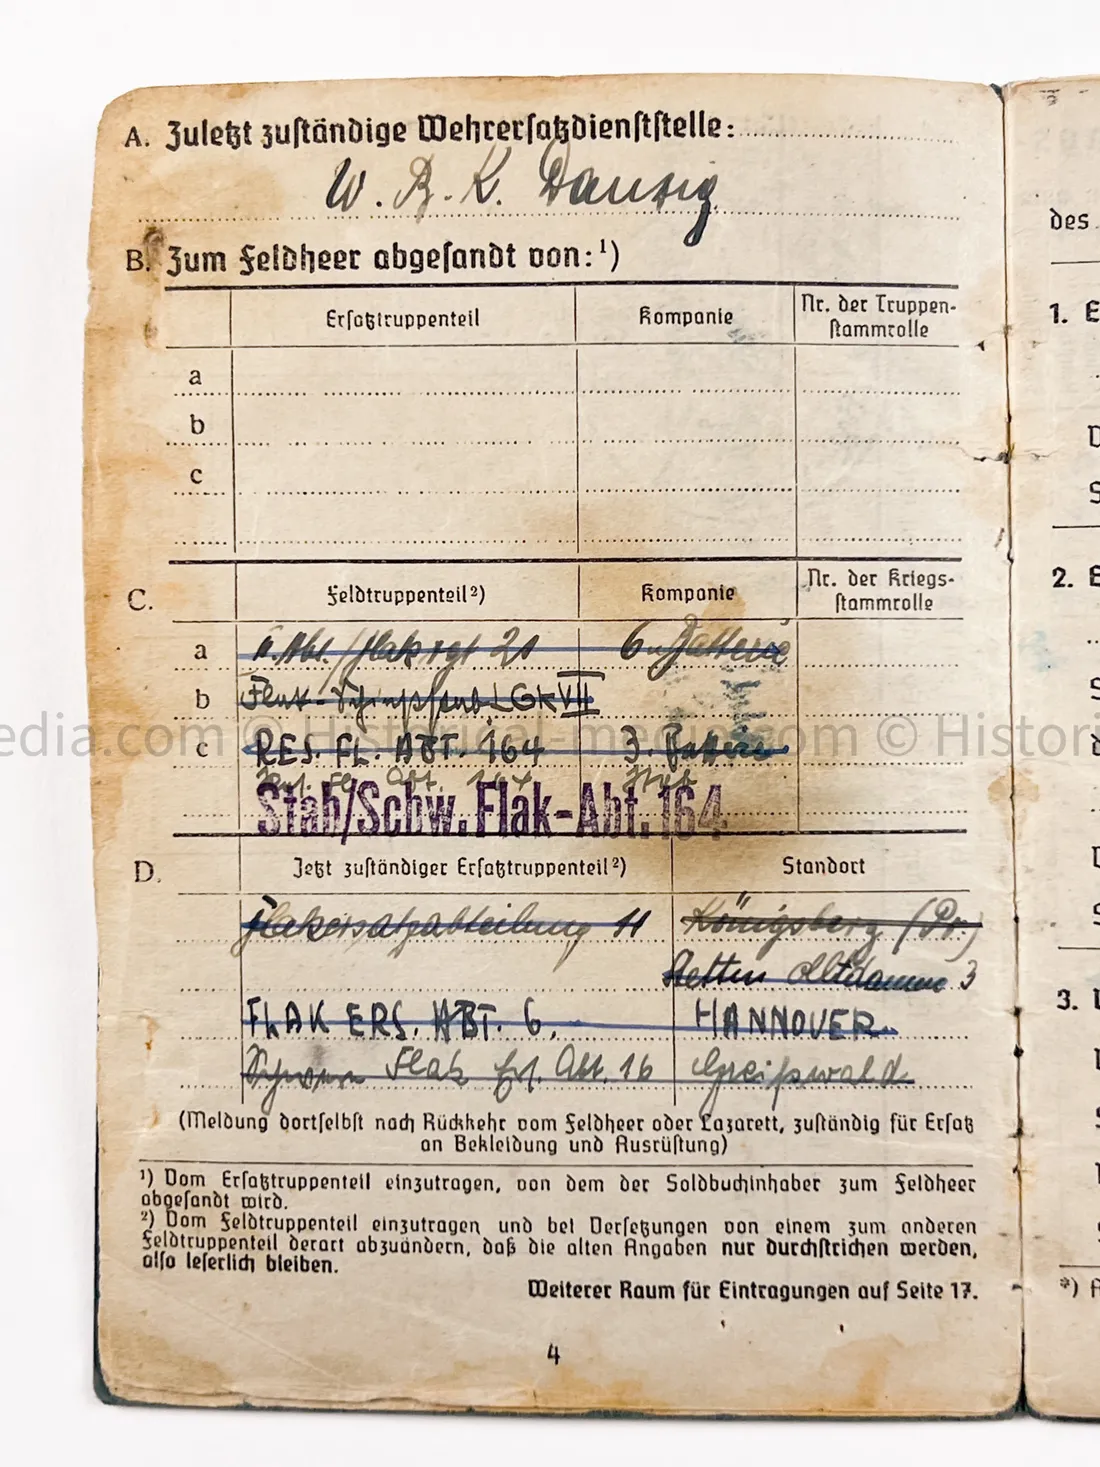 A. Zuletzt zuständige Wehrersatzdienststelle:
W. B. K. Danzig
B. Zum Feldheer abgesandt von:¹)
Ersatztruppenteil Kompanie Nr. der Truppen-
stammrolle
a
b
c
C. Feldtruppenteil²) Kompanie Nr. der Kriegs-
stammrolle
a II. Abt./Flakrgt 21 6. Batterie
b Flak LGK VII
c RES. FL. ABT. 164 3. Batterie
Res. Fl. Abt. 164
Stab/Schw. Flak-Abt. 164
D. Jetzt zuständiger Ersatztruppenteil²) Standort
Flakersatzabteilung 11 Königsberg (Pr.)
Stettin Altdamm 3
FLAK ERS. ABT. 6. HANNOVER.
Schwere Flak Ers. Abt. 16 Greifswald
(Meldung dortselbst nach Rückkehr vom Feldheer oder Lazarett, zuständig für Ersatz
an Bekleidung und Ausrüstung)
¹) Vom Ersatztruppenteil einzutragen, von dem der Soldbuchinhaber zum Feldheer
abgesandt wird.
²) Vom Feldtruppenteil einzutragen und bei Versetzungen von einem zum anderen
Feldtruppenteil derart abzuändern, daß die alten Angaben nur durchstrichen werden,
also leserlich bleiben.
Weiterer Raum für Eintragungen auf Seite 17.
4
des
1. E
2. E
3.
*)
edia.com © Historical-media.com © Histori